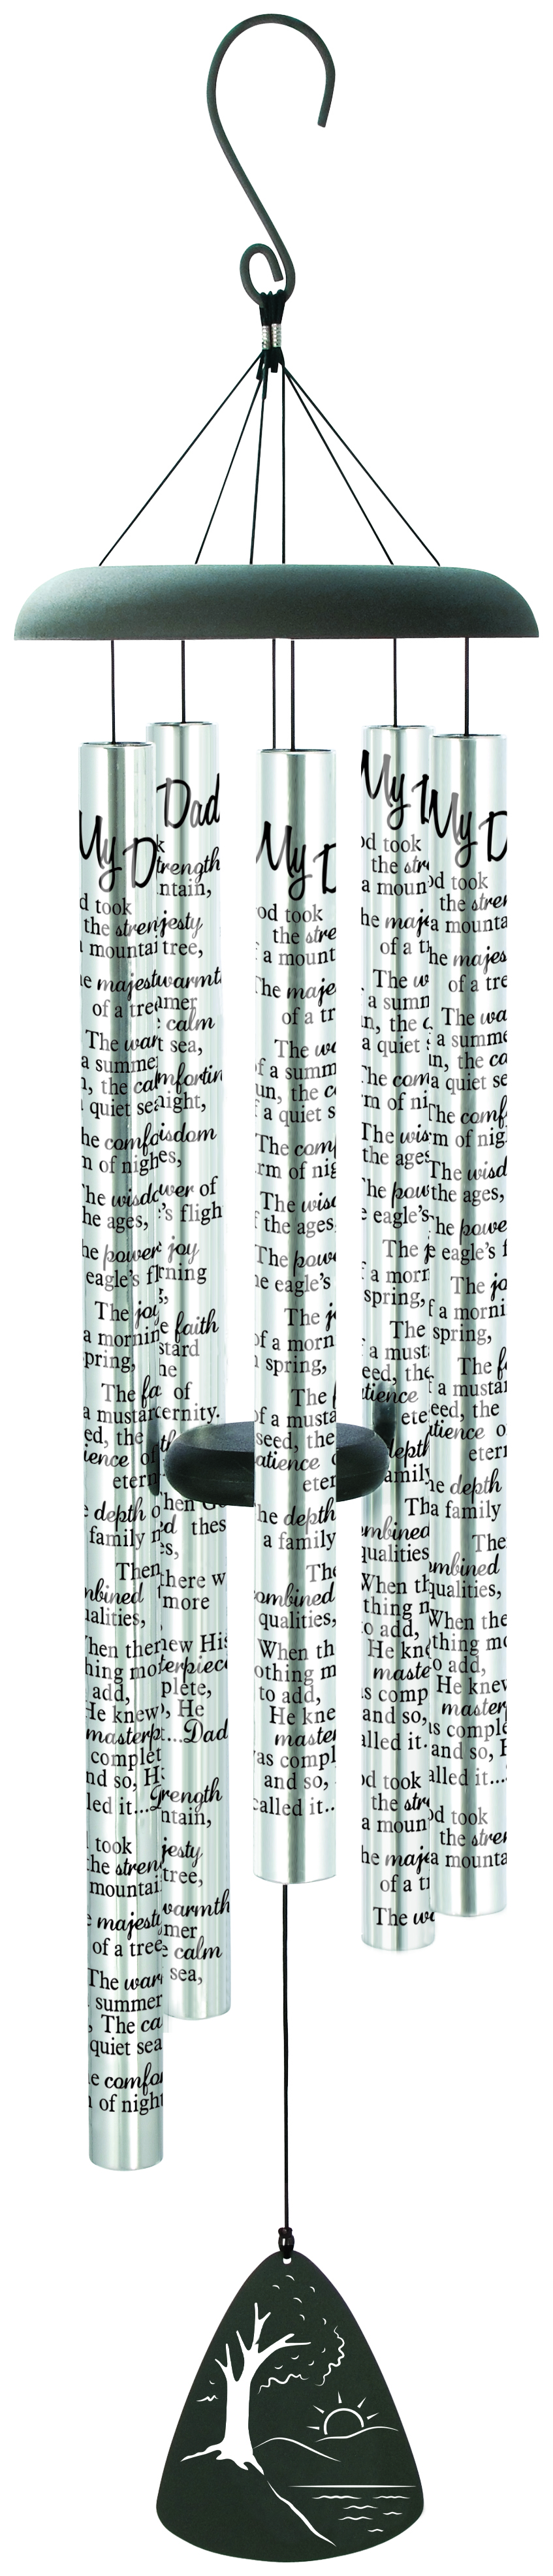 My D
d took
the stren
a mountai
he majest
of a tree
The war
a summe
n, the cal
a quiet sea
he comfo
m of nigh
The wisdo
he ages,
he power
eagle's fl
The joy
a mornin
spring,
The fa
a mustar
ed, the
ience o
etern
e depth o
family n
Then
mbined
ualities,
When ther
hing mor
add,
He knew
masterp
complet
nd so, H
led it...D
took
the stren
mountai
e majesty
of a tree
The war
summer
, The ca
quiet sea
e comfor
n of night
Dad
k
trength
ntain,
jesty
tree,
warmth
mer
e calm
t sea,
mfortin
night,
isdom
es,
wer of
's fligh
joy
rning
g,
e faith
stard
he
of
ernity.
th
hen Go
d thes
es,
here w
more
new His
terpiece
plete,
, He
t...Dad
trength
ntain,
jesty
tree,
warmth
mer
e calm
sea,
My D
od took
the stre
f a mount
The maje
of a tr
The wa
of a summ
un, the ca
f a quiet s
The comf
rm of nig
The wisd
f the ages,
The powe
he eagle's
The j
of a morn
n spring,
The f
of a musta
seed, the
atience o
eter
he depth
a family
The
ombined
qualities,
When th
othing m
to add,
He kne
master
was compl
and so,
called it...
My D
od took
the stre
a moun
he maje
of a tr
The w
a summ
n, the c
a quiet
The com
rm of ni
The wis
the ages
The pow
e eagle's
The j
f a morn
spring,
The
f a must
eed, the
atience
ete
depth
amily
ombined
qualities
When th
thing m
to add,
He kne
maste
as comp
and so,
alled it.
od took
the stre
a moun
he maje
of a tr
The wa
My D
od took
the stren
a mounta
he majes
of a tre
The wa
a summe
n, the ca
a quiet se
The comf
m of nig
The wisd
the ages,
he powe
e eagle's f
The jo
f a morni
spring,
The f
a mustar
eed, the
atience o
etern
he depth
a family
The
mbined
qualities,
When the
thing mo
to add,
He knew
master
as comple
and so, H
alled it...
od took
the stren
a mounta